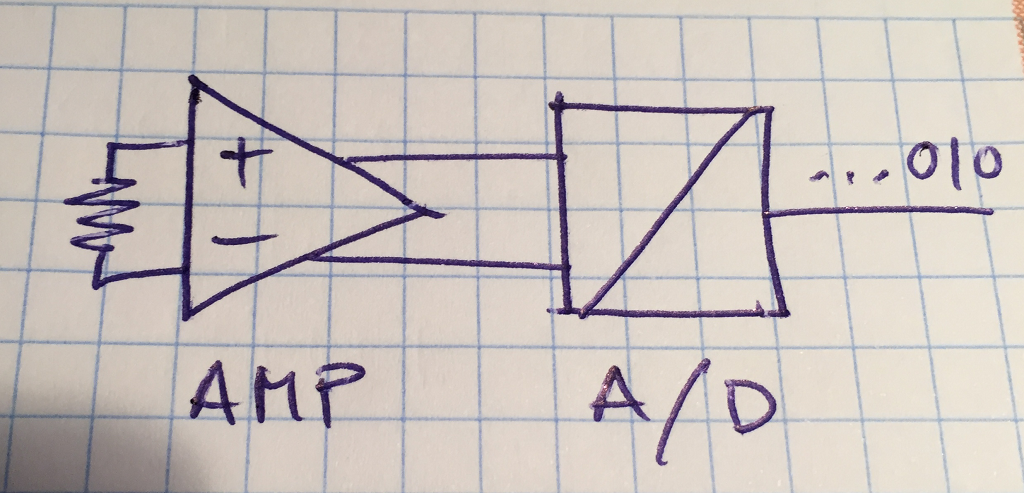 +
...010
−
AMP A/D